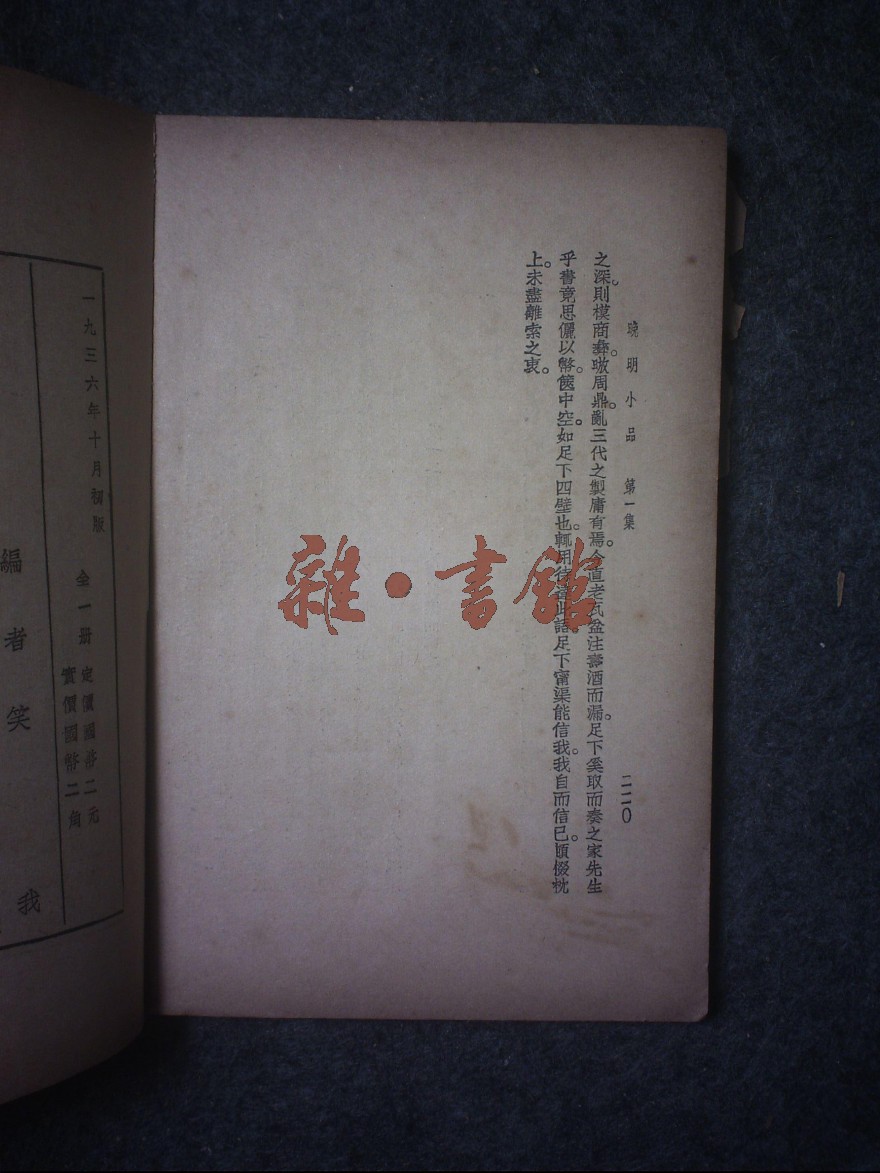 晚明小品 第一集
二二〇
之深。則模商彝。暾周鼎。亂三代之製庸有焉。今直老瓦盆注壽酒而漏。足下奚取而奏之家先生
乎書竟思儷以幣。篋中空。如足下四壁也。輒用待此語足下甯渠能信我。我自而信已。順侲枕
上。未盡離索之衷。
一九三六年十月初版
全一册 定價國幣二元
實價國幣二角
編者 笑我
雜·書館